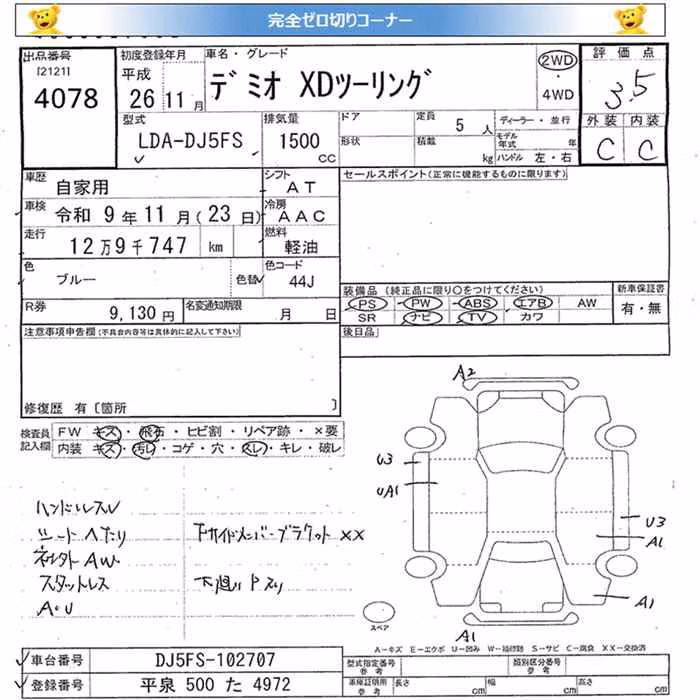 完全ゼロ切りコーナー
出品番号
[2121]
4078
初度登録年月
平成
26 11月
車名・グレード
デミオ XDツーリング
2WD
・
4WD
評価点
3.5
外装 内装
C C
型式
LDA-DJ5FS
排気量
1500
CC
ドア
形状
定員
5 人
積載
kg
ディーラー・並行
モデル年式 年
ハンドル 左・右
車歴
自家用
シフト
AT
車検
令和 9年11月(23日)
冷房
AAC
走行
12万9千747 km
燃料
軽油
色
ブルー
色替
色コード
44J
R券
9,130円
名変通知期限
月 日
セールスポイント(正常に機能するものに限ります)
装備品(純正品に限り○をつけてください)
PS PW ABS エアB AW
SR ナビ TV カワ
新車保証書
有・無
後日品
注意事項申告欄(不具合内容等は具体的に記入して下さい)
修復歴 有〔箇所 〕
検査員記入欄
FW キズ・飛石・ヒビ割・リペア跡・×要
内装 キズ・汚レ・コゲ・穴・スレ・キレ・破レ
ハンドルスレ
シートヘたり
社外AW
スタットレス
A・U
下サイドメンバーブラケット××
下廻りPスリ
A2
U3
UA1
U3
A1
A1
A1
スペア
A-キズ E-エクボ U-凹み W-補修跡 S-サビ C-腐食 XX-交換済
車台番号
DJ5FS-102707
登録番号
平泉 500 た 4972
型式指定番号
参考
類別区分番号
参考
車庫証明用
参考
長さ cm
幅 cm
高さ cm